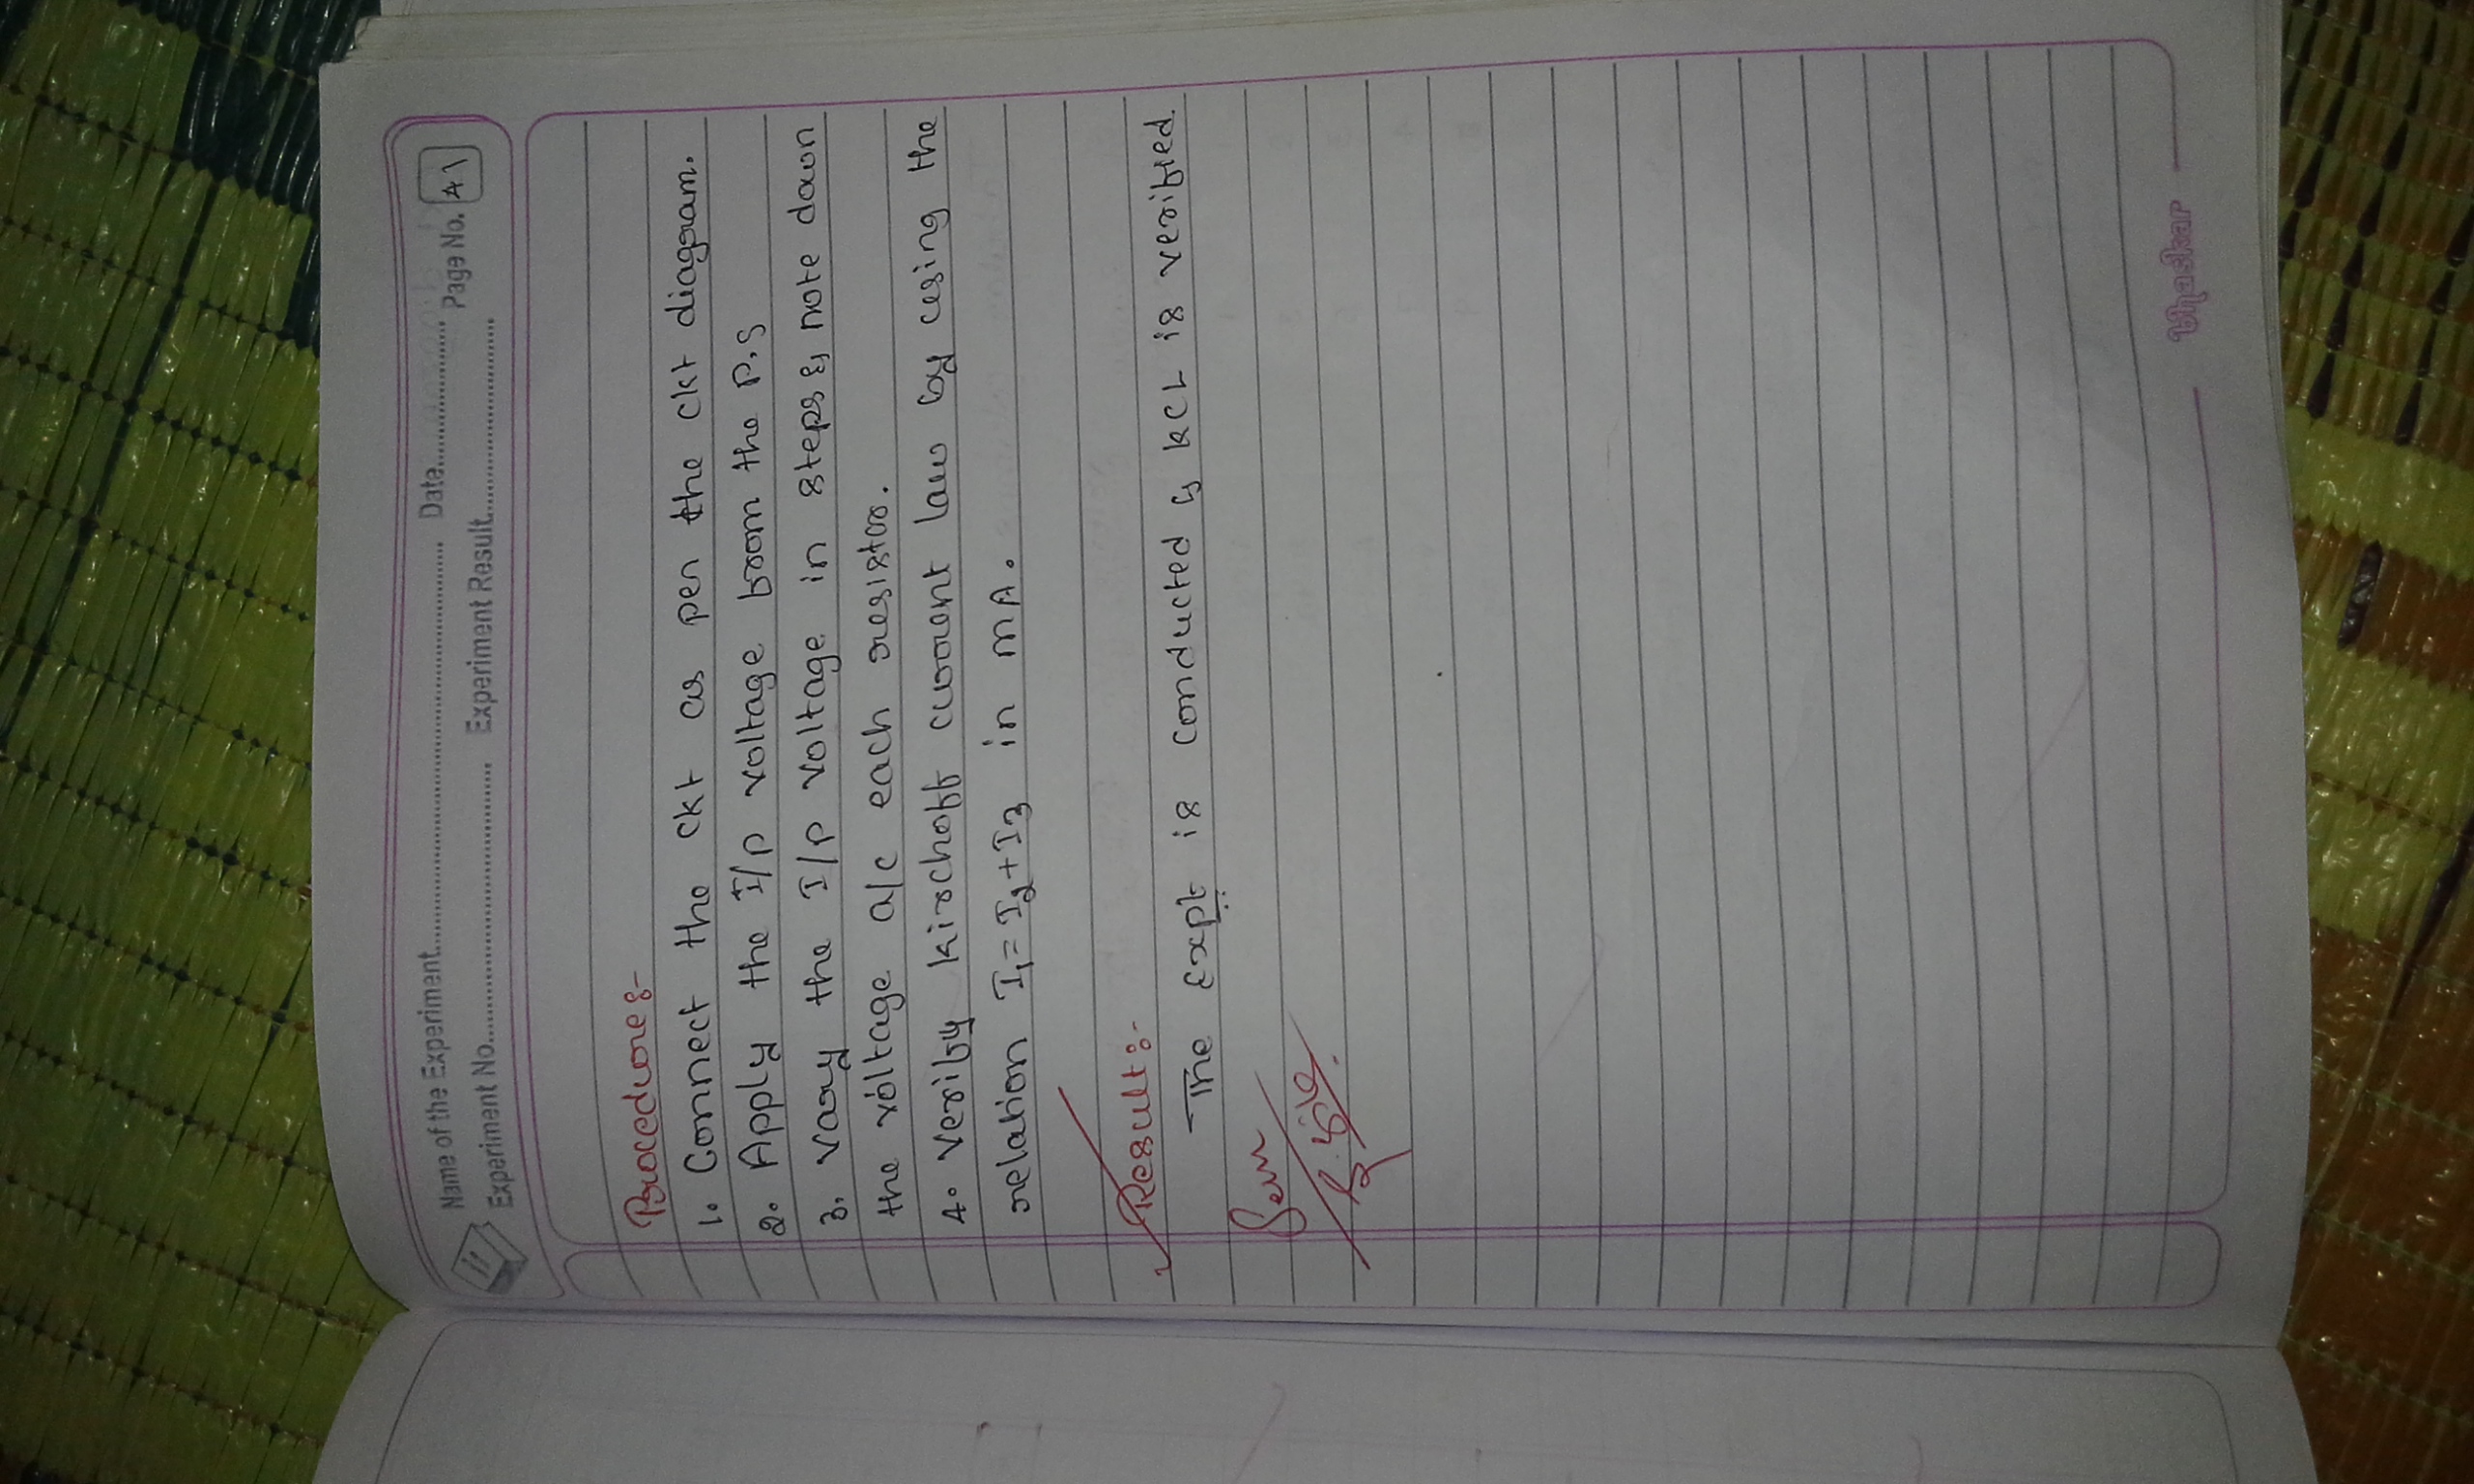 Name of the Experiment Date Page No. 41
Experiment No. Experiment Result
Procedure:-
1. Connect the ckt as per the ckt diagram.
2. Apply the I/p voltage from the P.S
3. Vary the I/p voltage in steps & note down
the voltage a/c each resistor.
4. Verify kirschoff current law by using the
relation I₁=I₂+I3 in mA.
Result:-
The Expt is conducted & KCL is verified
bhaskar